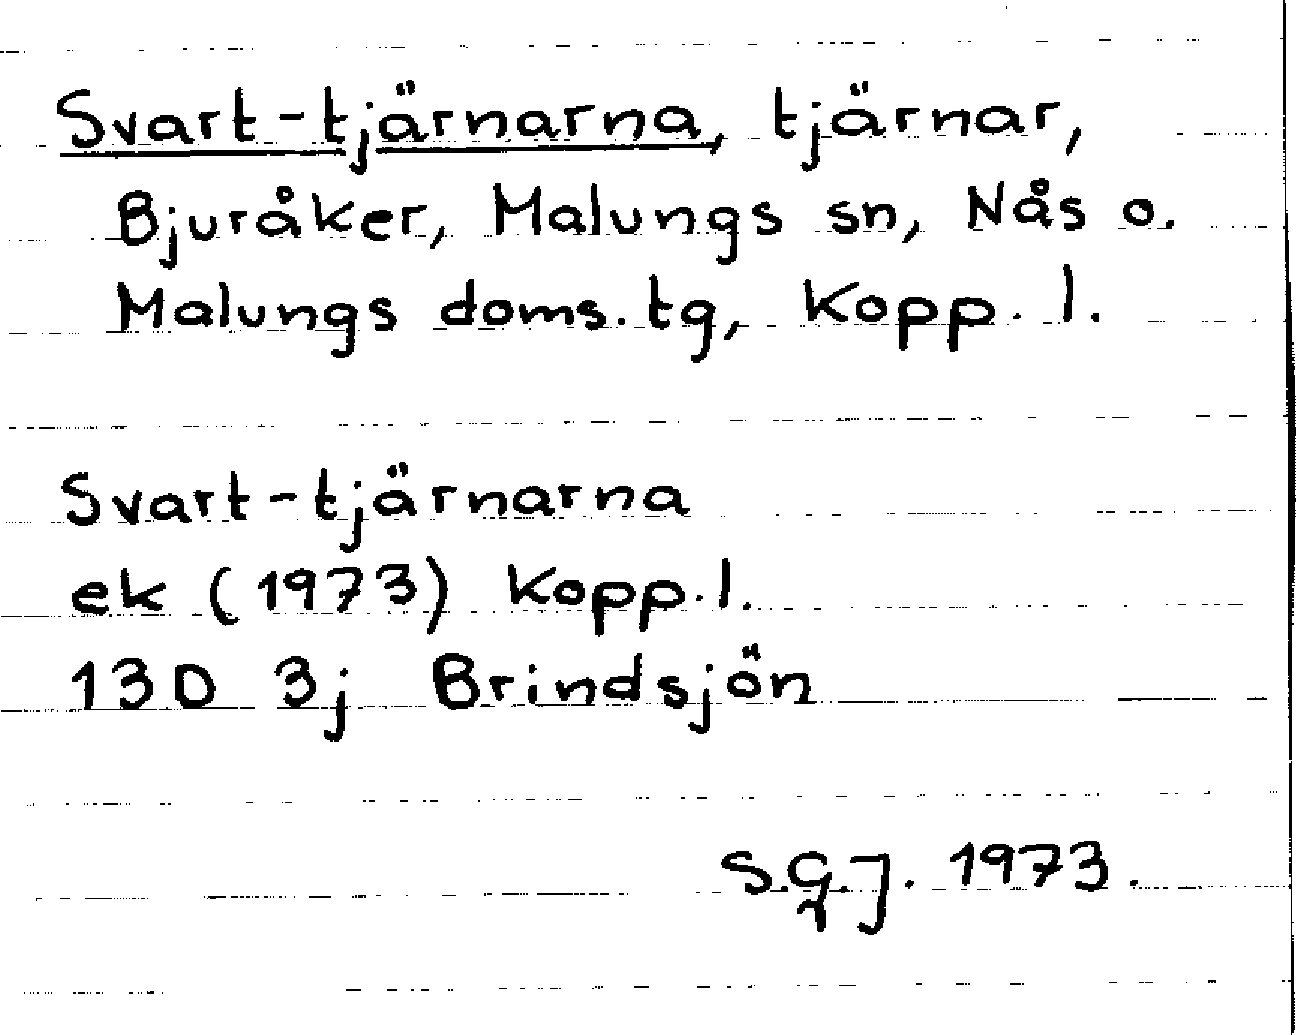 Svart-tjärnarna, tjärnar,
Bjuråker, Malungs sn, Nås o.
Malungs doms.tg, Kopp. l.
Svart-tjärnarna
ek (1973) Kopp.l.
13D 3j Brindsjön
S.G.J. 1973.